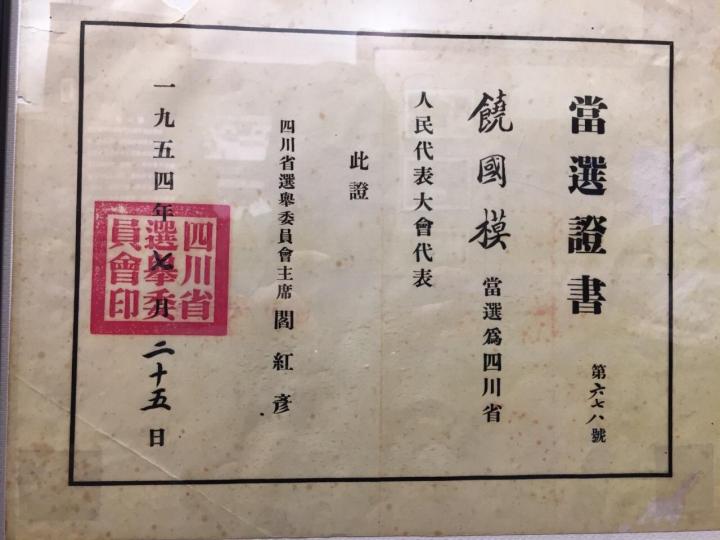 當選證書
第六七八號
饒國模當選爲四川省
人民代表大會代表
此證
四川省選舉委員會主席 閻紅彥
一九五四年七月二十五日
四川省
選舉委
員會印